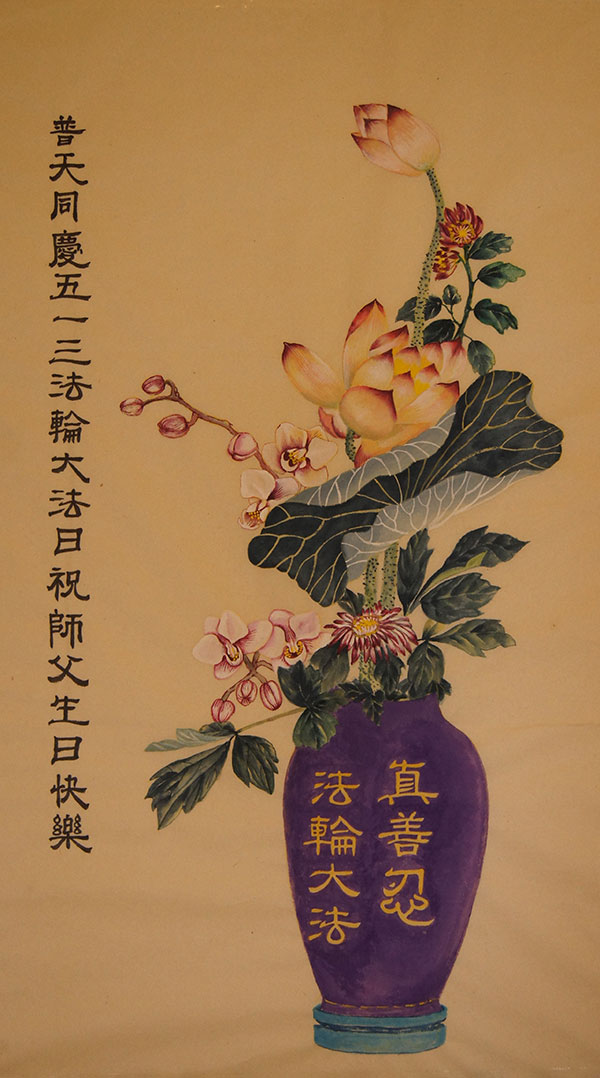 普天同慶五一三法輪大法日祝師父生日快樂
真善忍
法輪大法